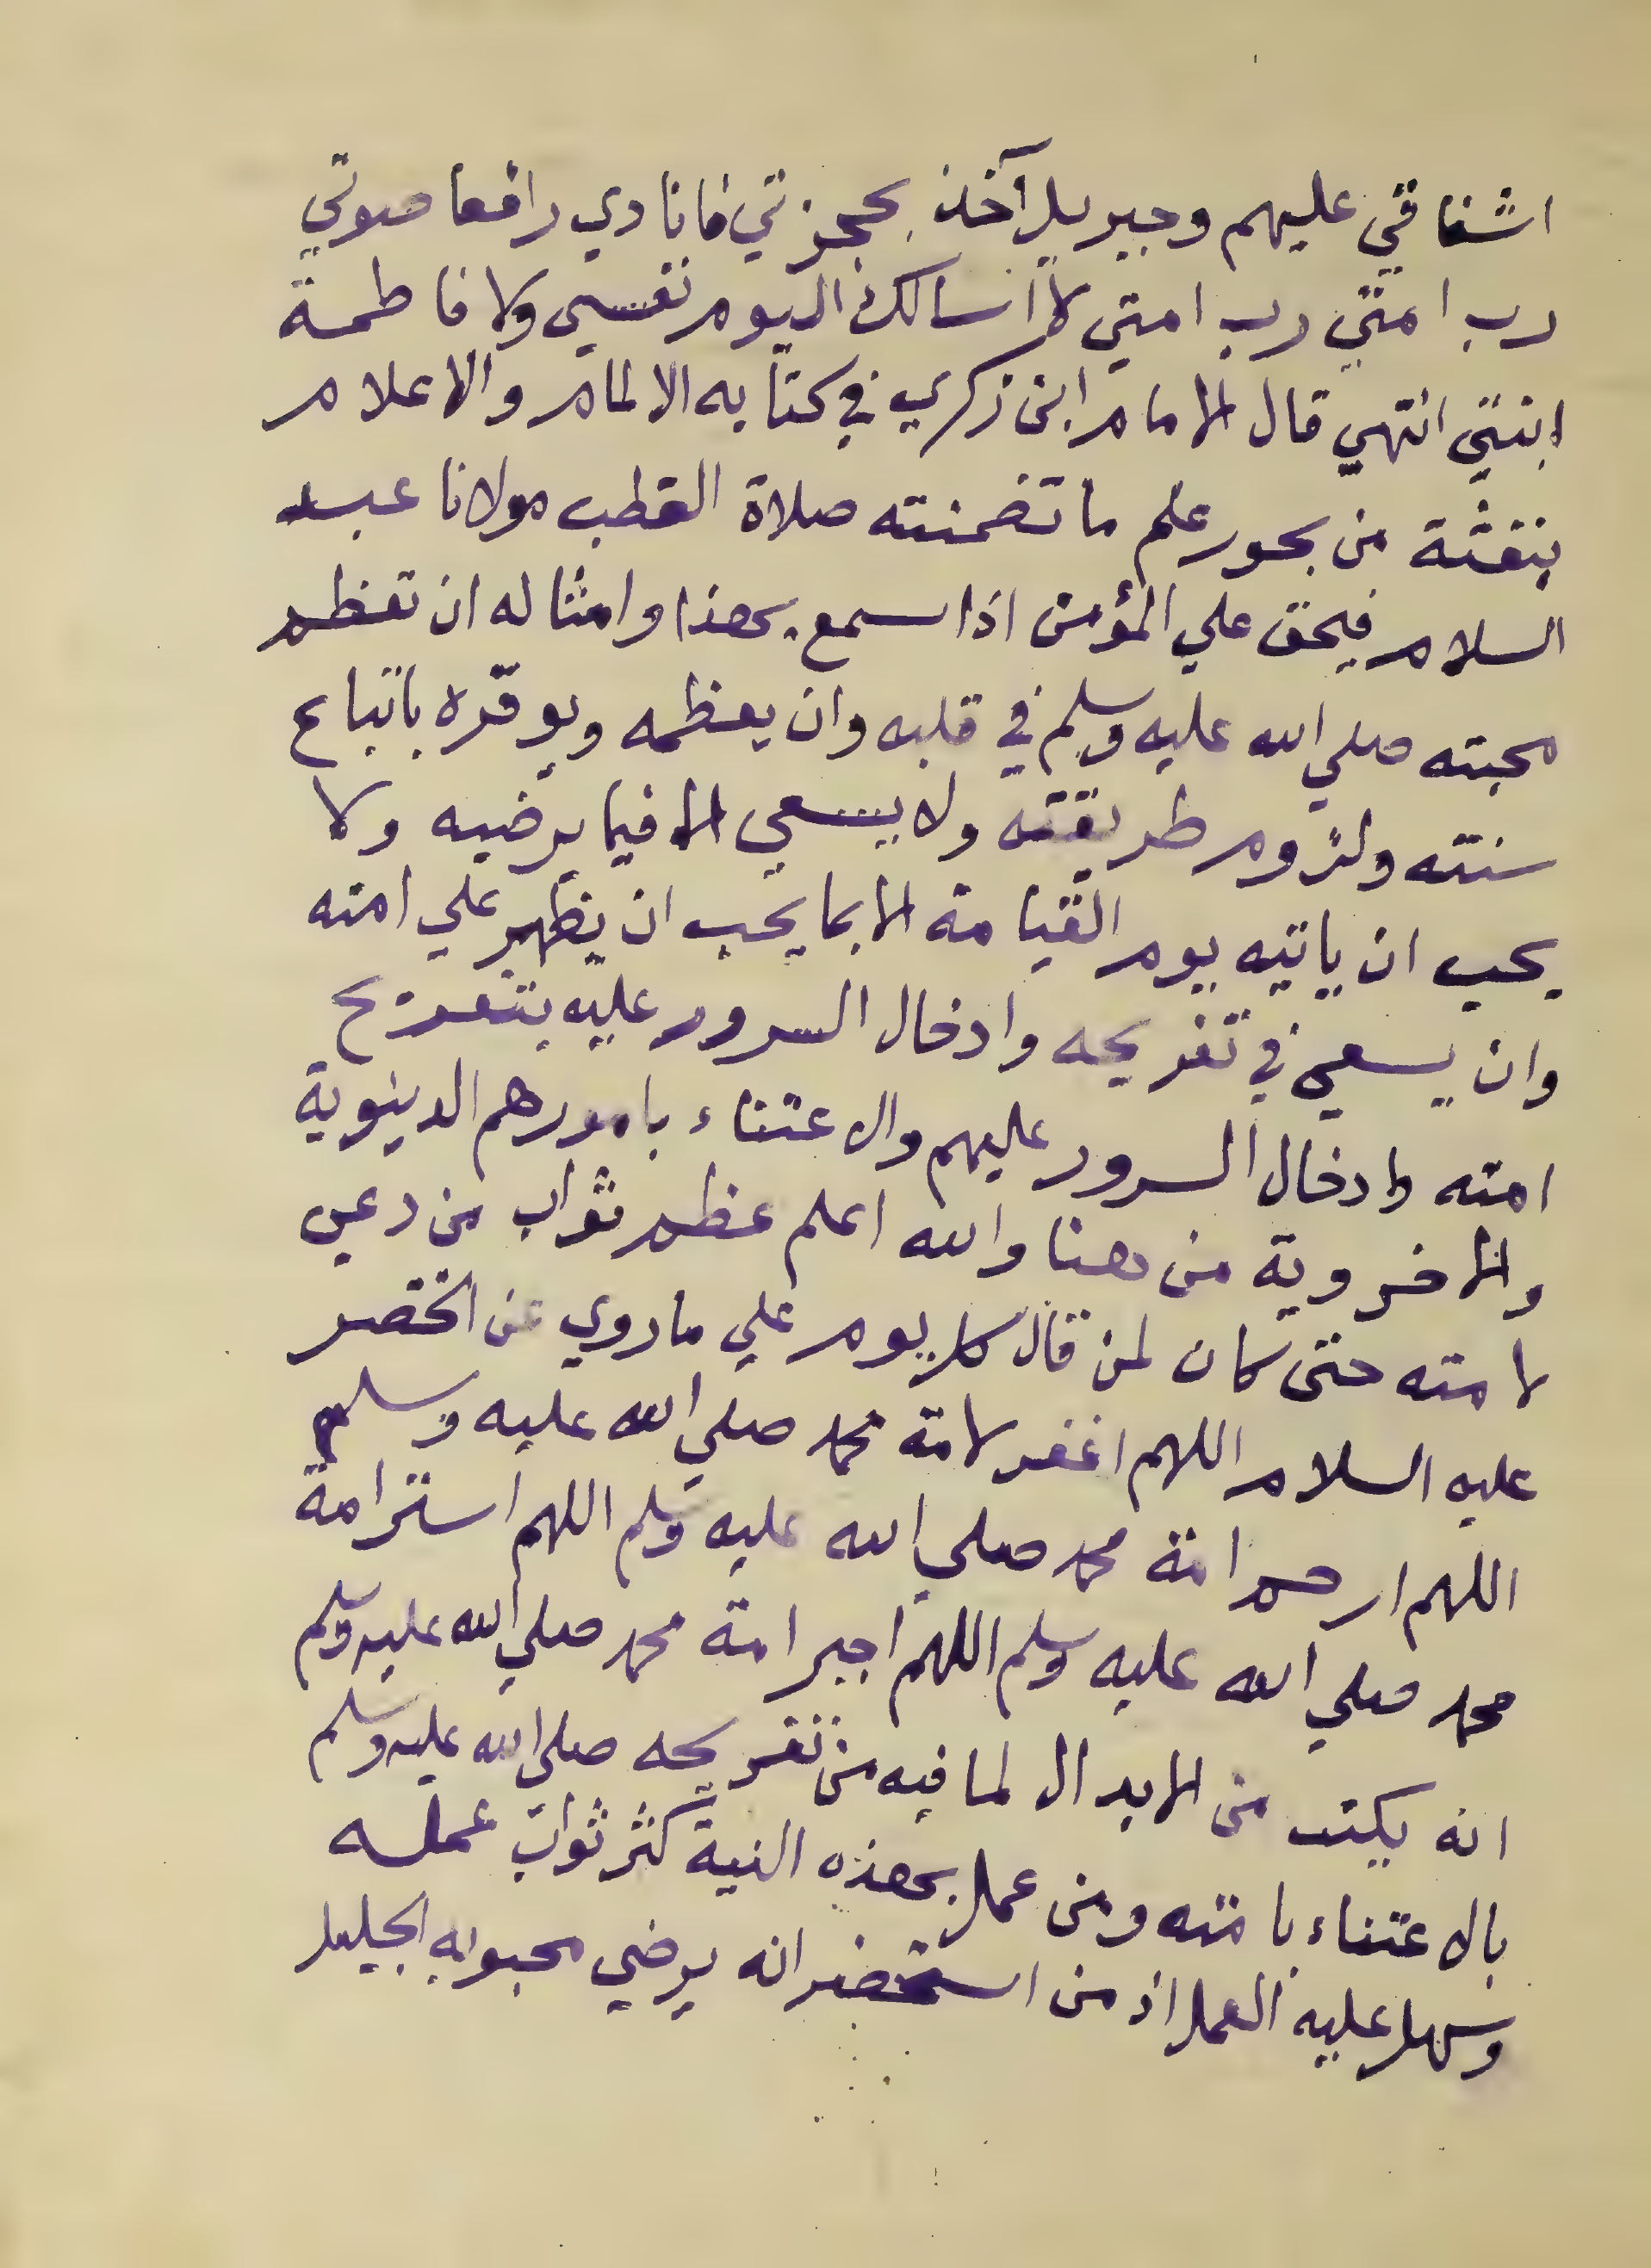 اشفاقي عليهم وجبريل آخذ بحجزتي فانادي رافعا صوتي
رب امتي رب امتي لا اسالك اليوم نفسي ولا فاطمة
ابنتي انتهي قال الامام ابن زكري في كتابه الالمام والاعلام
بنفثة من بحور علم ما تضمنته صلاة القطب مولانا عبد
السلام فيحق علي المؤمن اذا سمع بهذا وامثاله ان تعظم
محبته صلي الله عليه وسلم في قلبه وان يعظمه ويوقره باتباع
سنته ولزوم طريقته ولا يسعي الا فيما يرضيه ولا
يحب ان ياتيه يوم القيامة الا بما يحب ان يظهر علي امته
وان يسعي في تفريحه وادخال السرور عليه بتفريح
امته وادخال السرور عليهم والاعتناء بامورهم الدينوية
والاخروية من هنا والله اعلم عظم ثواب من دعي
لامته حتى كان لمن قال كل يوم علي ما روي عن الخضر
عليه السلام اللهم اغفر لامة محمد صلي الله عليه وسلم
اللهم ارحم امة محمد صلي الله عليه وسلم اللهم استر امة
محمد صلي الله عليه وسلم اللهم اجبر امة محمد صلي الله عليه وسلم
انه يكتب من الابدال لما فيه من تفريحه صلي الله عليه وسلم
بالاعتناء بامته ومن عمل بهذه النية كثر ثواب عمله
وسهل عليه العمل اذ من استحضر انه يرضي محبوبه الجليل